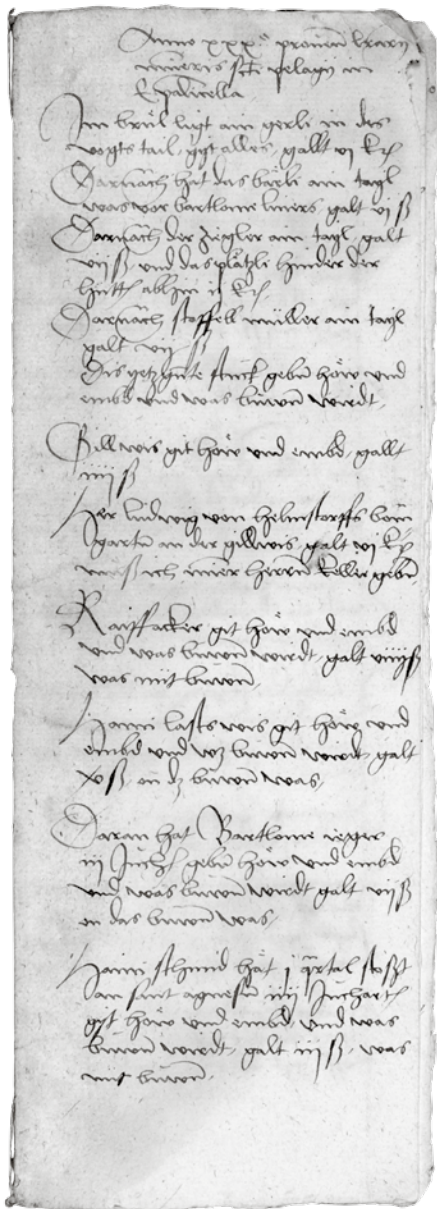 Anno xxx° prouentu
muneris scti pelagij in
Im brül ligt ain gerli in des
vogts tail, git alles, gallt vj
Darnäch hat das bärli ain tayl
was vor bartlome galt vj ß
Darnäch der ziegler ain tayl galt
vij ß vnd das plätzli hinder der
hütt
Darnäch stoffell müller ain tayl
galt vij ß
stuck gebn höw vnd
embd vnd was buwen wirdt
Gillwis git höw vnd embd, gallt
iiij ß
Her ludwig von helmstorffs bom
garten an der gillwis galt vj
ich miner herren keller geben
acker git höw vnd embd
vnd was buwen wirdt, galt
was nüt buwen
Haini lasts wis git höw vnd
embd vnd wz buwen wirdt galt
xv ß, on dz buwen was
Daran hat Bartlome ieger
iij Juch gebn höw vnd embd
vnd was buwen wirdt galt vij ß
on das buwen was
Haini schmid hät j stost
an sant agnesen iiij Juchart
git höw vnd embd, vnd was
buwen wirdt, galt iij ß, was
nüt buwen